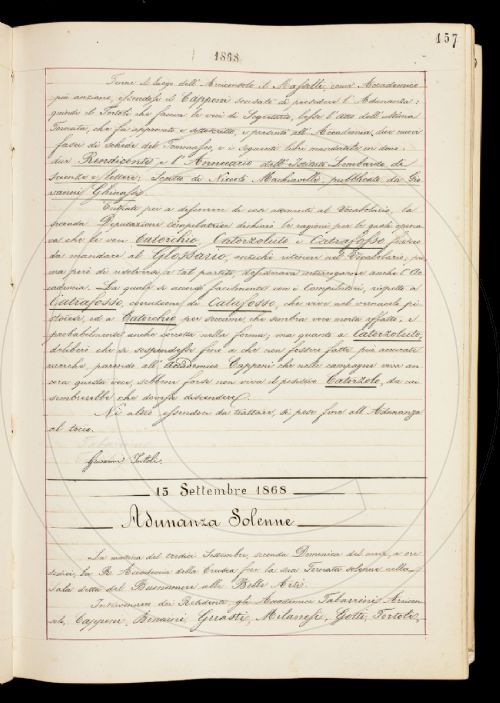 157
1868
Tenne il luogo dell'Arciconsolo il Masselli, come Accademico
più anziano, essendosi il Capponi scusato di presedere l'Adunanza:
quindi il Tortoli che faceva le veci di Segretario, lesse l'Atto dell'ultima
Tornata, che fu approvato e sottoscritto, e presentò all'Accademia, due nuove
fasi di schede del Tommaseo, e i seguenti libri mandatile in dono:
due Rendiconti e l'Annuario dell'Istituto Lombardo di
scienze e lettere; Scritti di Niccolò Machiavelli, pubblicati da Gio
vanni Ghinassi.
Entrati poi a discorrere di cose attenenti al Vocabolario, la
seconda Deputazione compilatrice dichiarò le ragioni per le quali opina
va che le voci Catorchio, Catorzoluto e Catrafosso fossero
da mandare al Glossario, anziché ritenere nel Vocabolario; ma
prima però di risolversi a tal partito, desiderava interrogarne anche l'Ac
cademia. La quale si accordò facilmente con i Compilatori, rispetto a
Catrafosso, corruzione di Catafosso, che vive nel vernacolo pi
stoiese, ed a Catorchio per torcione, che sembra voce morta affatto, e
probabilmente anche corrotta nella forma; ma quanto a Catorzoluto,
deliberò che si sospendesse fino a che non fossero fatte più accurate
ricerche, parendo all'Accademico Capponi che nelle campagne viva an
cora questa voce, sebbene forse non viva il positivo Catorzolo, da cui
sembrerebbe che dovesse discendere.
Né altro essendovi da trattare, si pose fine all'Adunanza
al tocco.
Giovanni Tortoli.
13 Settembre 1868
Adunanza Solenne
La mattina del tredici Settembre, seconda Domenica del mese, a ore
undici, la R. Accademia della Crusca fece la sua Tornata solenne nella
Sala detta del Buonumore alle Belle Arti.
Intervennero dei Residenti gli Accademici Tabarrini Arcicon
solo, Capponi, Bianchi, Guasti, Milanesi, Gotti, Tortoli,